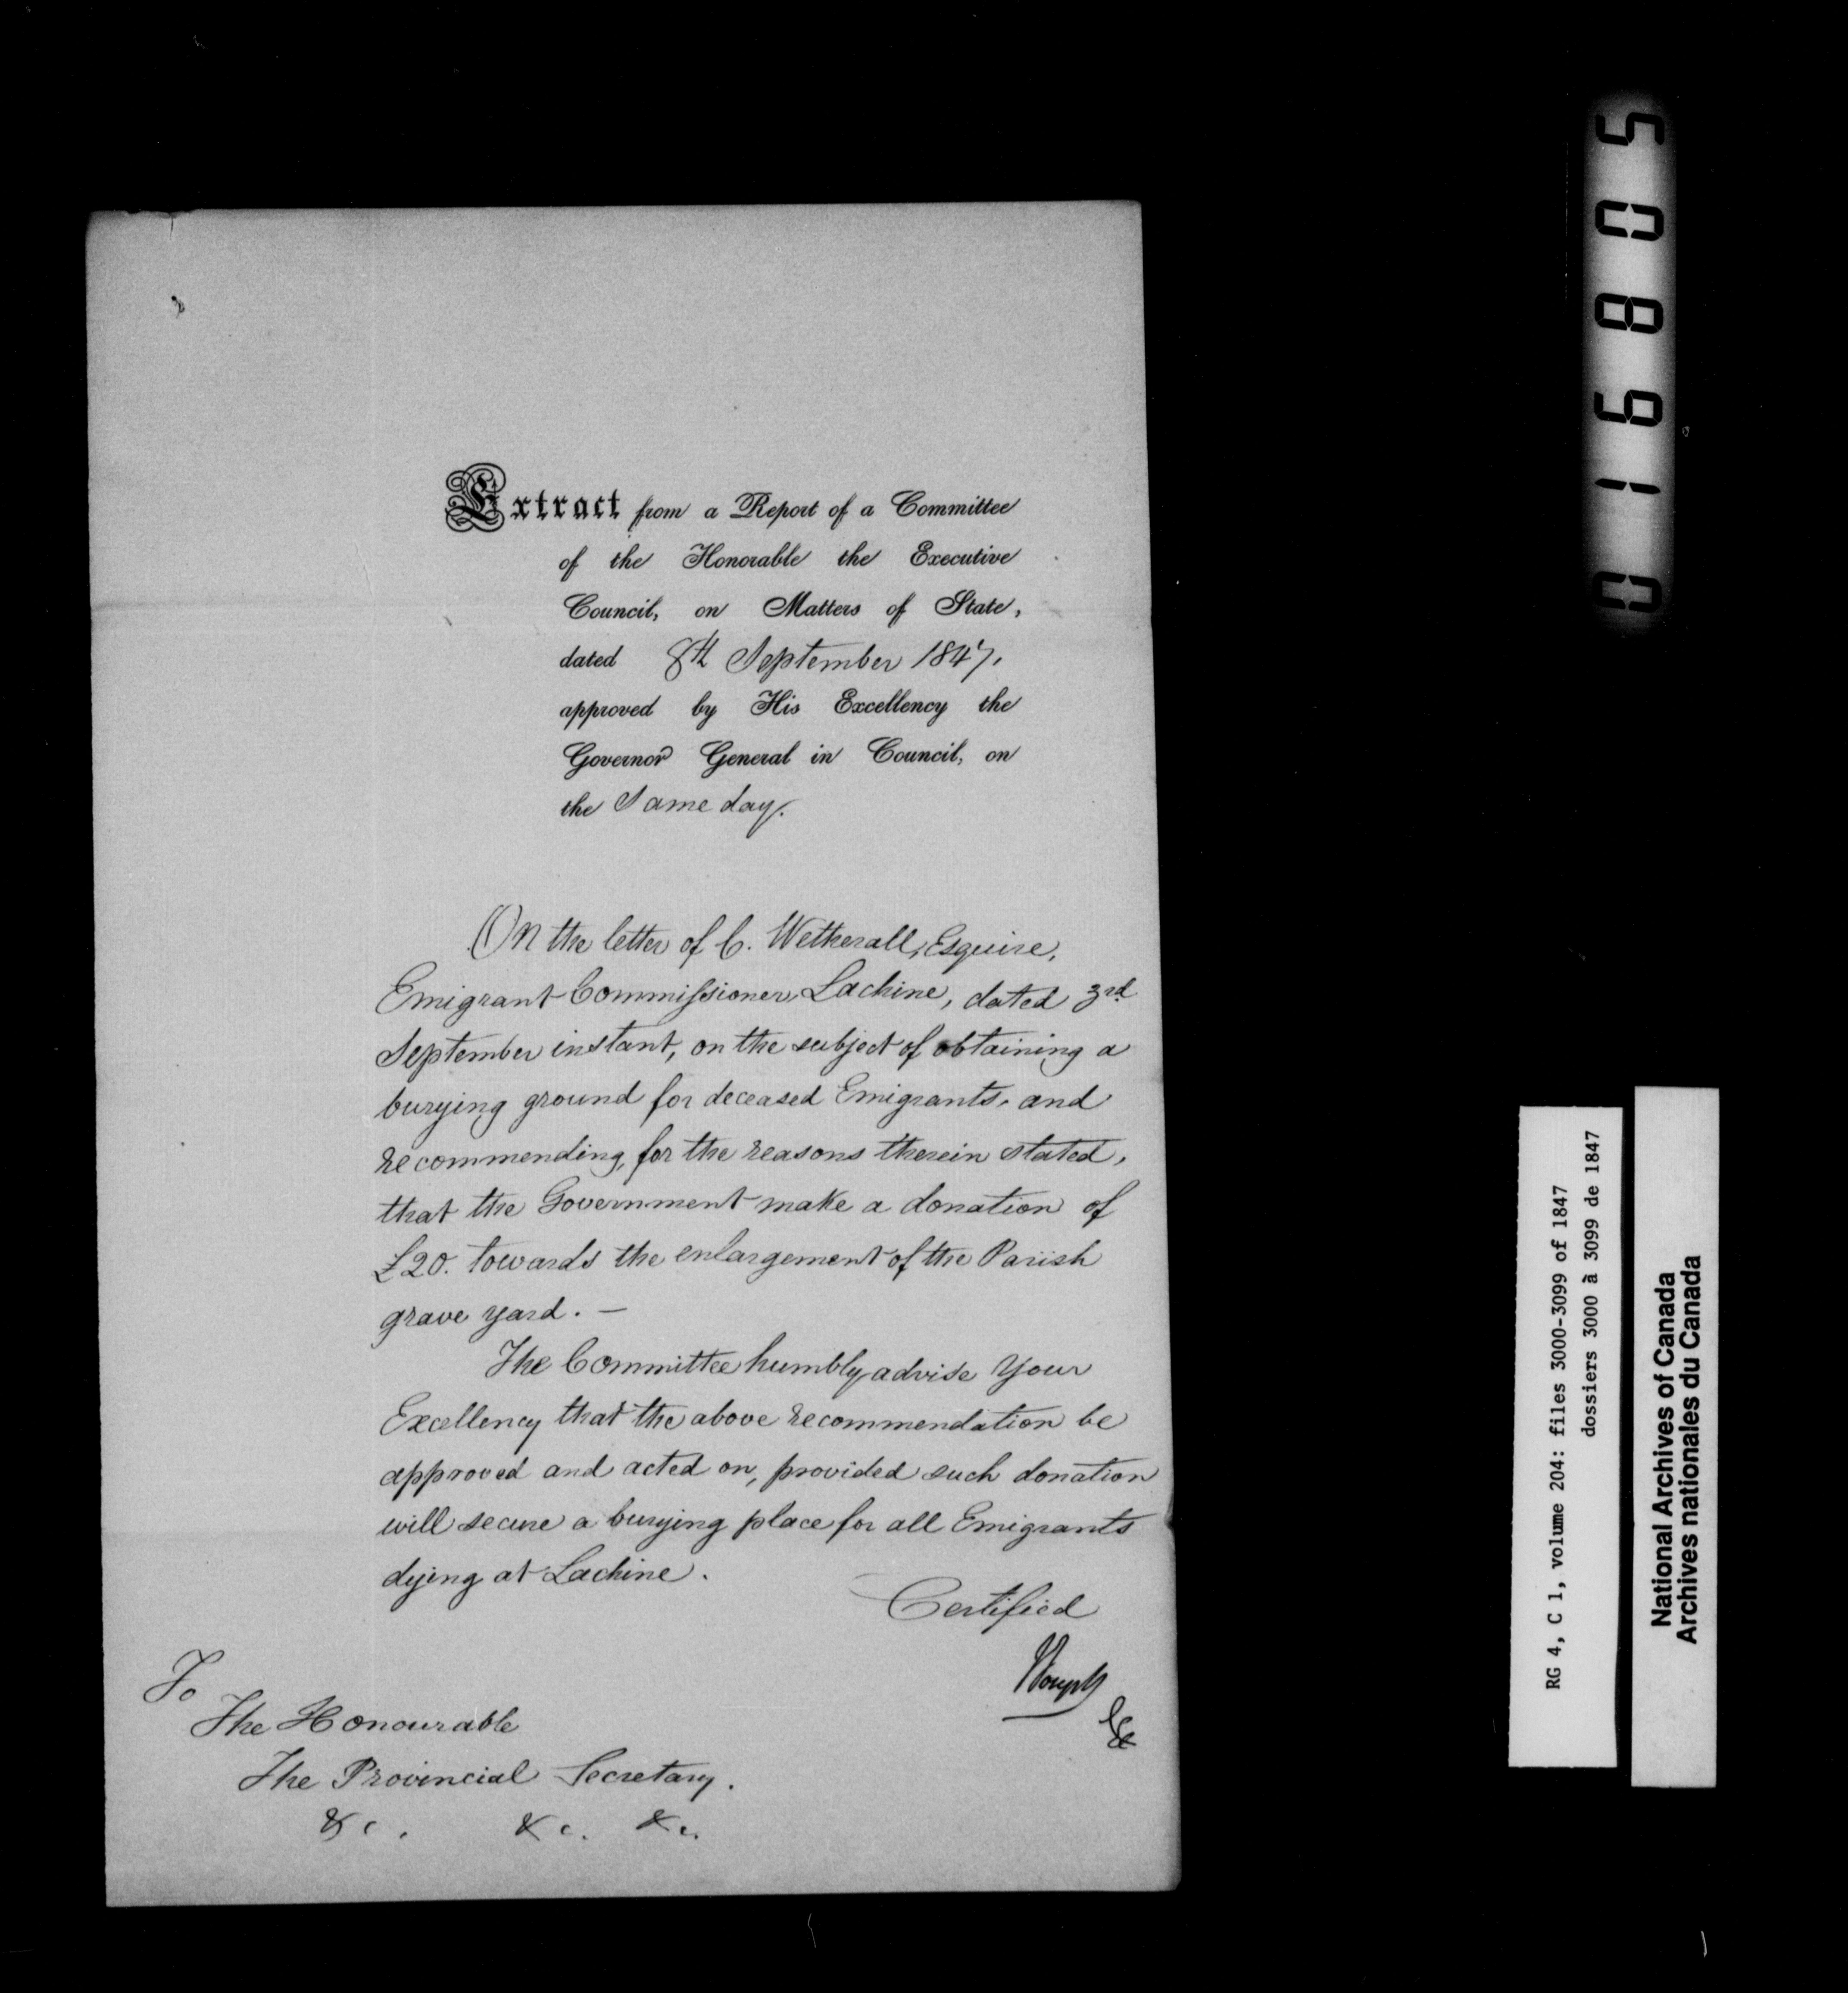 Extract from a Report of a Committee
of the Honorable the Executive
Council, on Matters of State,
dated 8th September 1847,
approved by His Excellency the
Governor General in Council, on
the Same day.
On the letter of C. Wetherall, Esquire,
Emigrant Commissioner, Lachine, dated 3rd
September instant, on the subject of obtaining a
burying ground for deceased Emigrants, and
recommending, for the reasons therein stated,
that the Government make a donation of
£20. towards the enlargement of the Parish
grave yard. —
The Committee humbly advise Your
Excellency that the above recommendation be
approved and acted on, provided such donation
will secure a burying place for all Emigrants
dying at Lachine.
Certified
To
The Honourable
The Provincial Secretary.
&c. &c. &c.
016805
RG 4, C 1, volume 204: files 3000-3099 of 1847
dossiers 3000 à 3099 de 1847
National Archives of Canada
Archives nationales du Canada